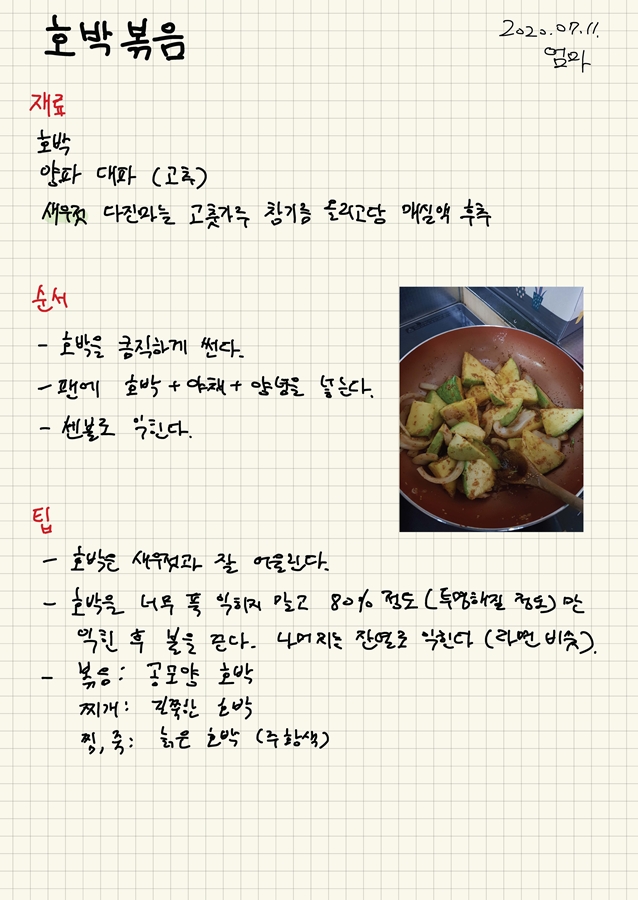 호박볶음
2020.07.11.
엄마
재료
호박
양파 대파 (고추)
새우젓 다진마늘 고춧가루 참기름 올리고당 매실액 후추
순서
- 호박을 큼직하게 썬다.
- 팬에 호박 + 야채 + 양념을 넣는다.
- 센불로 익힌다.
팁
- 호박은 새우젓과 잘 어울린다.
- 호박을 너무 푹 익히지 말고 80% 정도 (투명해질 정도) 만
익힌 후 불을 끈다. 나머지는 잔열로 익힌다 (라면 비슷).
- 볶음: 공모양 호박
찌개: 길쭉한 호박
찜, 죽: 늙은 호박 (주황색)